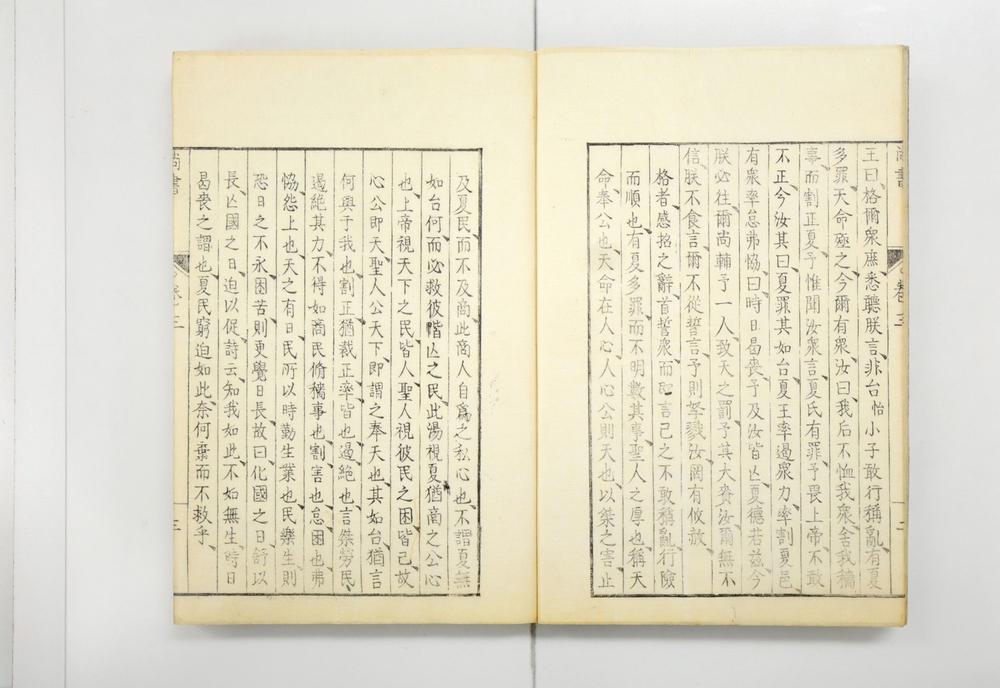 尚書
卷三
二
王曰格爾衆庶悉聽朕言非台怡小子敢行稱亂有夏
多罪天命殛之今爾有衆汝曰我后不恤我衆舍我穡
事而割正夏予惟聞汝衆言夏氏有罪予畏上帝不敢
不正今汝其曰夏罪其如台夏王率遏衆力率割夏邑
有衆率怠弗恊曰時日曷喪予及汝皆亾夏德若玆今
朕必往爾尚輔予一人致天之罰予其大賚汝爾無不
信朕不食言爾不從誓言予則孥戮汝罔有攸赦
格者感招之辭首誓衆而卽言己之不敢稱亂行險
而順也有夏多罪而不明數其事聖人之厚也稱天
命奉公也天命在人心人心公則天也以桀之害止
及夏民而不及商此商人自爲之私心也不謂夏無
如台何而必救彼偕亾之民此湯視夏猶商之公心
也上帝視天下之民皆人聖人視彼民之困皆己故
心公卽天聖人公天下卽謂之奉天也其如台猶言
何與于我也割正猶裁正率皆也遏絶也言桀勞民
遏絶其力不得如商民偷穡事也割害也怠困也弗
恊怨上也天之有日民所以時勤生業也民樂生則
恐日之不永困苦則更覺日長故曰化國之日舒以
長亾國之日迫以促詩云知我如此不如無生時日
曷喪之謂也夏民窮迫如此奈何棄而不救乎
尚書
卷三
三